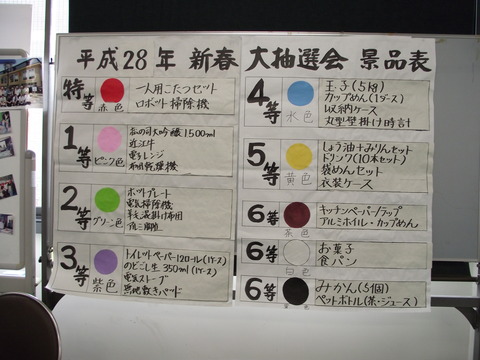 平成28年 新春 大抽選会 景品表
特等
赤色
一人用こたつセット
ロボット掃除機
1等
ピンク色
1500ml
近江牛
電子レンジ
布団乾燥機
2等
グリーン色
ホットプレート
電気掃除機
羽毛肌掛け布団
3等
紫色
トイレットペーパー12ロール(1ケース)
のどごし生 350ml(1ケース)
電気ストーブ
無地敷きパッド
4等
水色
玉子(5kg)
カップめん(1ケース)
収納ケース
丸型壁掛け時計
5等
黄色
しょう油+みりんセット
ドリンク(10本セット)
袋めんセット
衣装ケース
6等
茶色
キッチンペーパー/ラップ
アルミホイル・カップめん
6等
白色
お菓子
食パン
6等
みかん(5個)
ペットボトル(茶・ジュース)